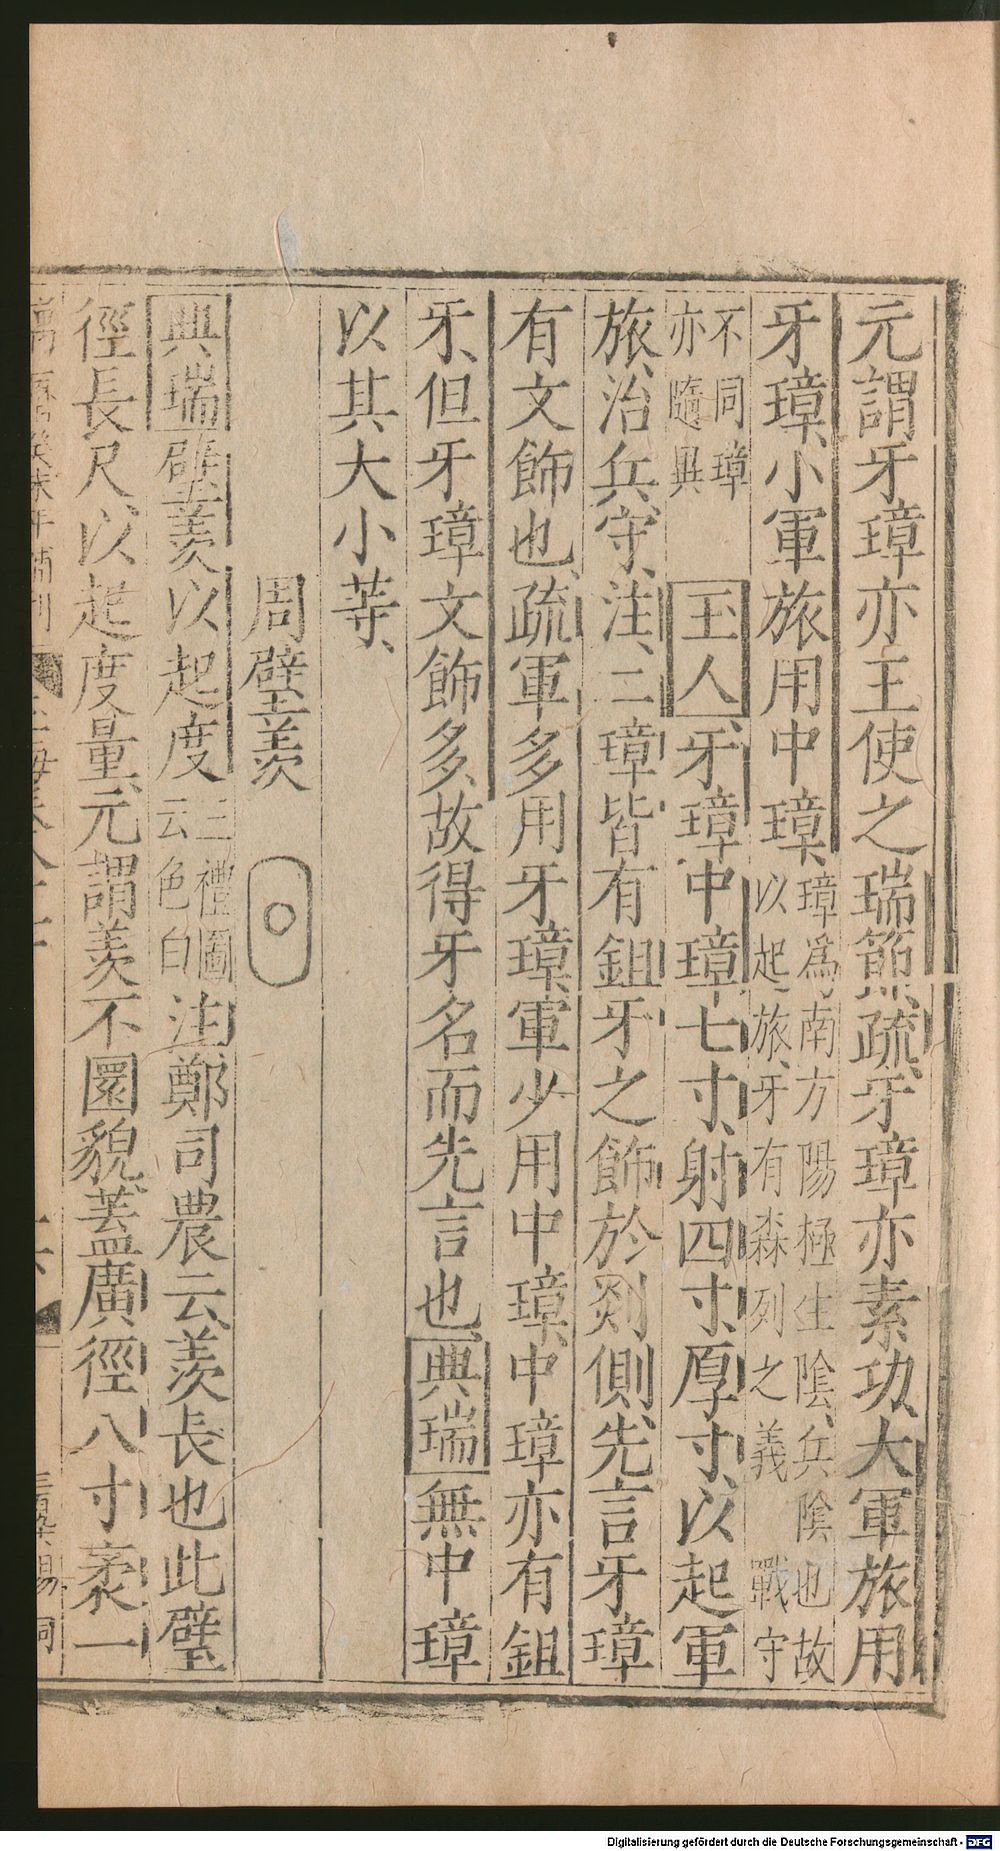 元謂牙璋亦王使之瑞節、疏、牙璋亦素功、大軍旅用
牙璋、小軍旅用中璋、璋爲南方陽極生陰、兵陰也故
以起旅、牙有森列之義 戰守
不同璋
亦隨異
玉人、牙璋中璋七寸、射四寸、厚寸、以起軍
旅、治兵、守、注、二璋皆有鉏牙之飾於剡側、先言牙璋
有文飾也、疏軍多用牙璋、軍少用中璋、中璋亦有鉏
牙、但牙璋文飾多、故得牙名而先言也、典瑞無中璋
以其大小䓁、
周璧羡
典瑞璧羡以起度三禮圖
云色白
注鄭司農云、羡長也此璧
徑長尺、以起度量、元謂羡不圜貌、蓋廣徑八寸袤一
Digitalisierung gefördert durch die Deutsche Forschungsgemeinschaft - DFG